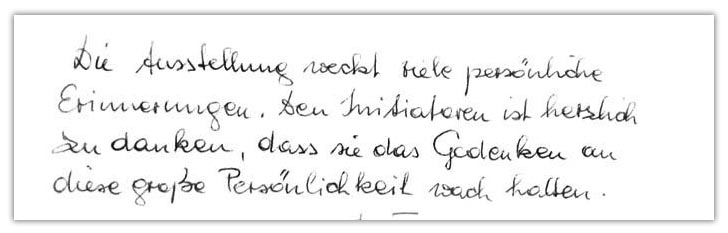 Die Ausstellung weckt viele persönliche
Erinnerungen. Den Initiatoren ist herzlich
zu danken, dass sie das Gedenken an
diese große Persönlichkeit wach halten.